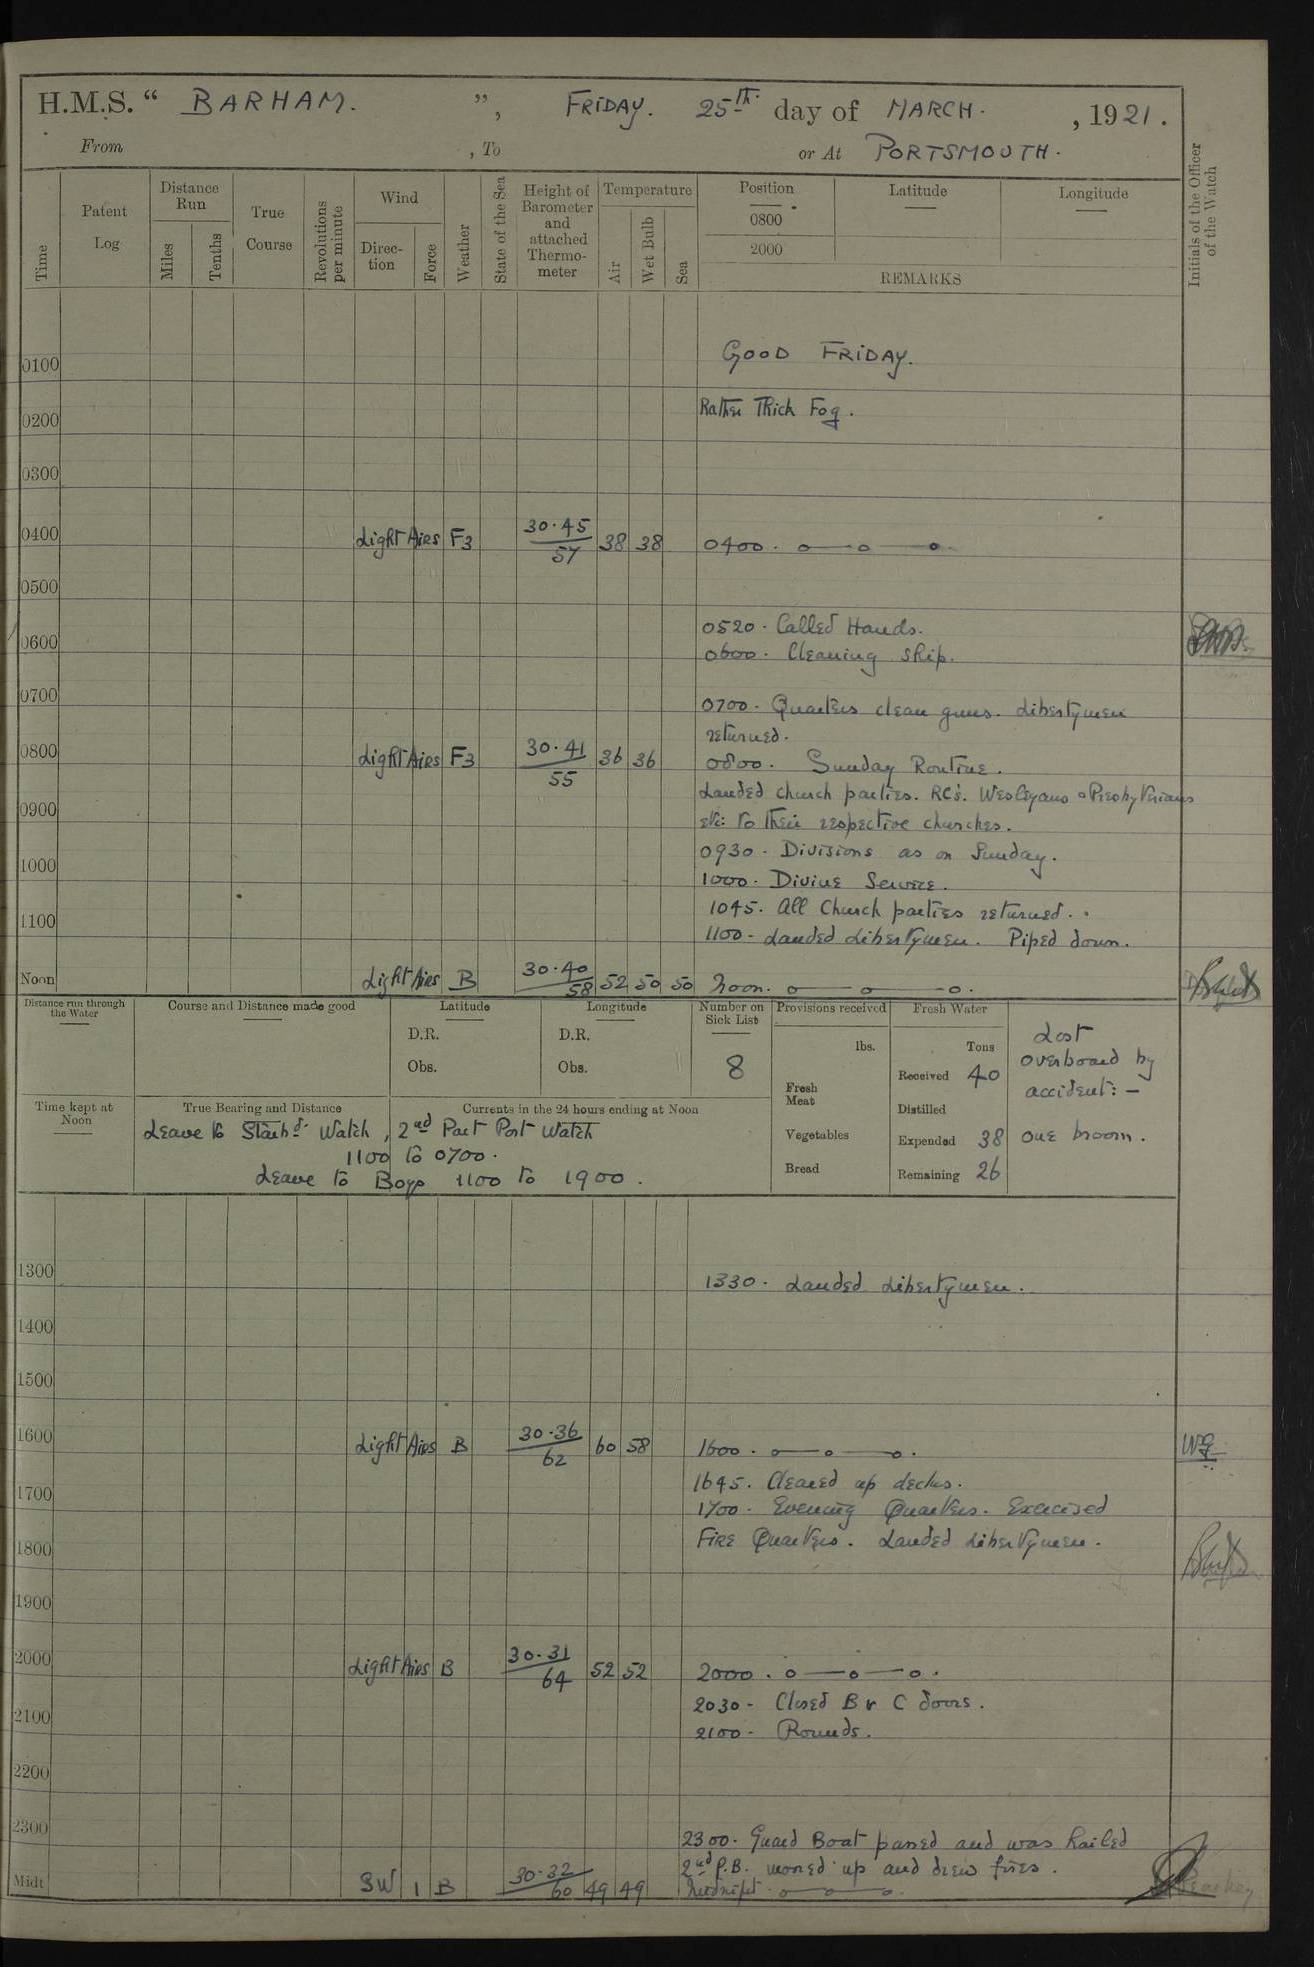 H.M.S. “ BARHAM. ”, FRIDAY. 25th day of MARCH. , 1921.
From , To or At PORTSMOUTH.
Time
Patent Log
Distance Run
Miles
Tenths
True Course
Revolutions per minute
Wind
Direction
Force
Weather
State of the Sea
Height of Barometer and attached Thermometer
Temperature
Air
Wet Bulb
Sea
Position Latitude Longitude
0800
2000
REMARKS
Initials of the Officer of the Watch
GOOD FRIDAY.
0100
Rather Thick Fog.
0200
0300
0400 Light Airs F3 30.45 38 38 0400.
57
0500
0520. Called Hands.
0600 0600. Cleaning Ship.
0700 0700. Quarters clean guns. Libertymen
returned.
0800 Light Airs F3 30.41 36 36 0800. Sunday Routine.
55
Landed church parties. RCs. Wesleyans & Presbyterians
0900 etc: to their respective churches.
0930. Divisions as on Sunday.
1000 1000. Divine Service.
1045. All Church parties returned.
1100 1100. Landed Libertymen. Piped down.
Noon Light Airs B 30.40 52 50 50 Noon.
58
Distance run through the Water
Course and Distance made good
Latitude
D.R.
Obs.
Longitude
D.R.
Obs.
Number on Sick List
8
Provisions received
lbs.
Fresh Meat
Vegetables
Bread
Fresh Water
Tons
Received 40
Distilled
Expended 38
Remaining 26
Lost
overboard by
accident: —
one broom.
Time kept at Noon
True Bearing and Distance
Currents in the 24 hours ending at Noon
Leave to Starbd. Watch, 2nd Part Port Watch
1100 to 0700.
Leave to Boys 1100 to 1900.
1300 1330. Landed Libertymen.
1400
1500
1600 Light Airs B 30.36 60 58 1600.
62
1645. Cleared up decks.
1700 1700. Evening Quarters. Exercised
Fire Quarters. Landed Libertymen.
1800
1900
2000 Light Airs B 30.31 52 52 2000.
64
2030. Closed B & C doors.
2100 2100. Rounds.
2200
2300 2300. Guard Boat passed and was hailed
2nd P.B. moored up and drew fires.
Midt SW 1 B 30.32 49 49 Midnight.
60